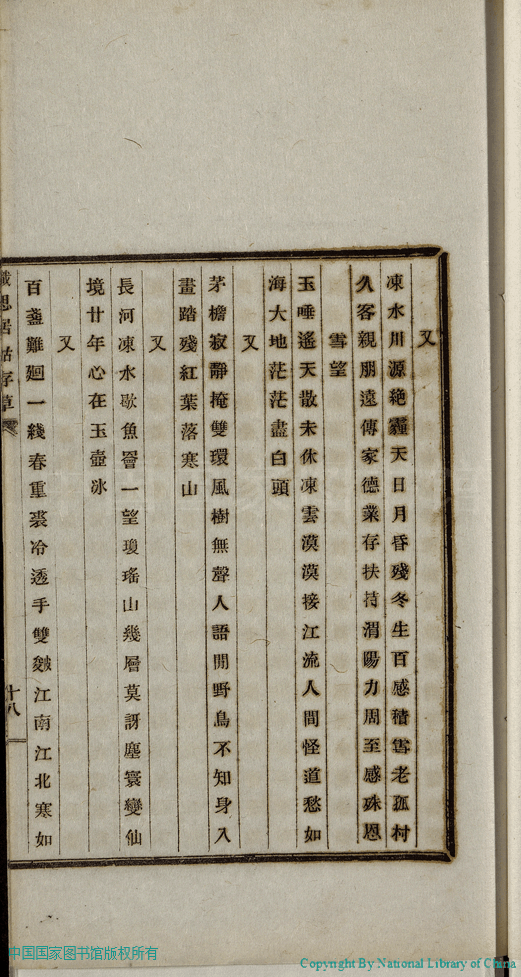 又
凍水川源絶霾天日月昏殘冬生百感積雪老孤村
久客親朋遠傳家德業存扶持渭陽力周至感殊恩
雪望
玉唾遙天散未休凍雲漠漠接江流人間怪道愁如
海大地茫茫盡白頭
又
茅檐寂靜掩雙環風樹無聲人語閒野鳥不知身入
畫踏殘紅葉落寒山
又
長河凍水歇魚罾一望瓊瑤山幾層莫訝塵寰變仙
境廿年心在玉壺冰
又
百盞難廻一綫春重裘冷透手雙皴江南江北寒如
思居 存草
十八
中国国家图书馆版权所有
Copyright By National Library of China